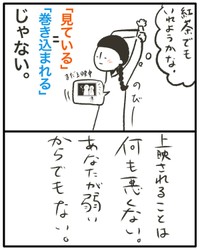 紅茶でも
いれようかな。
「見ている」
=
「巻き込まれる」
じゃない。
のび
上映されることは
何も悪くない。
あなたが弱い
からでもない。